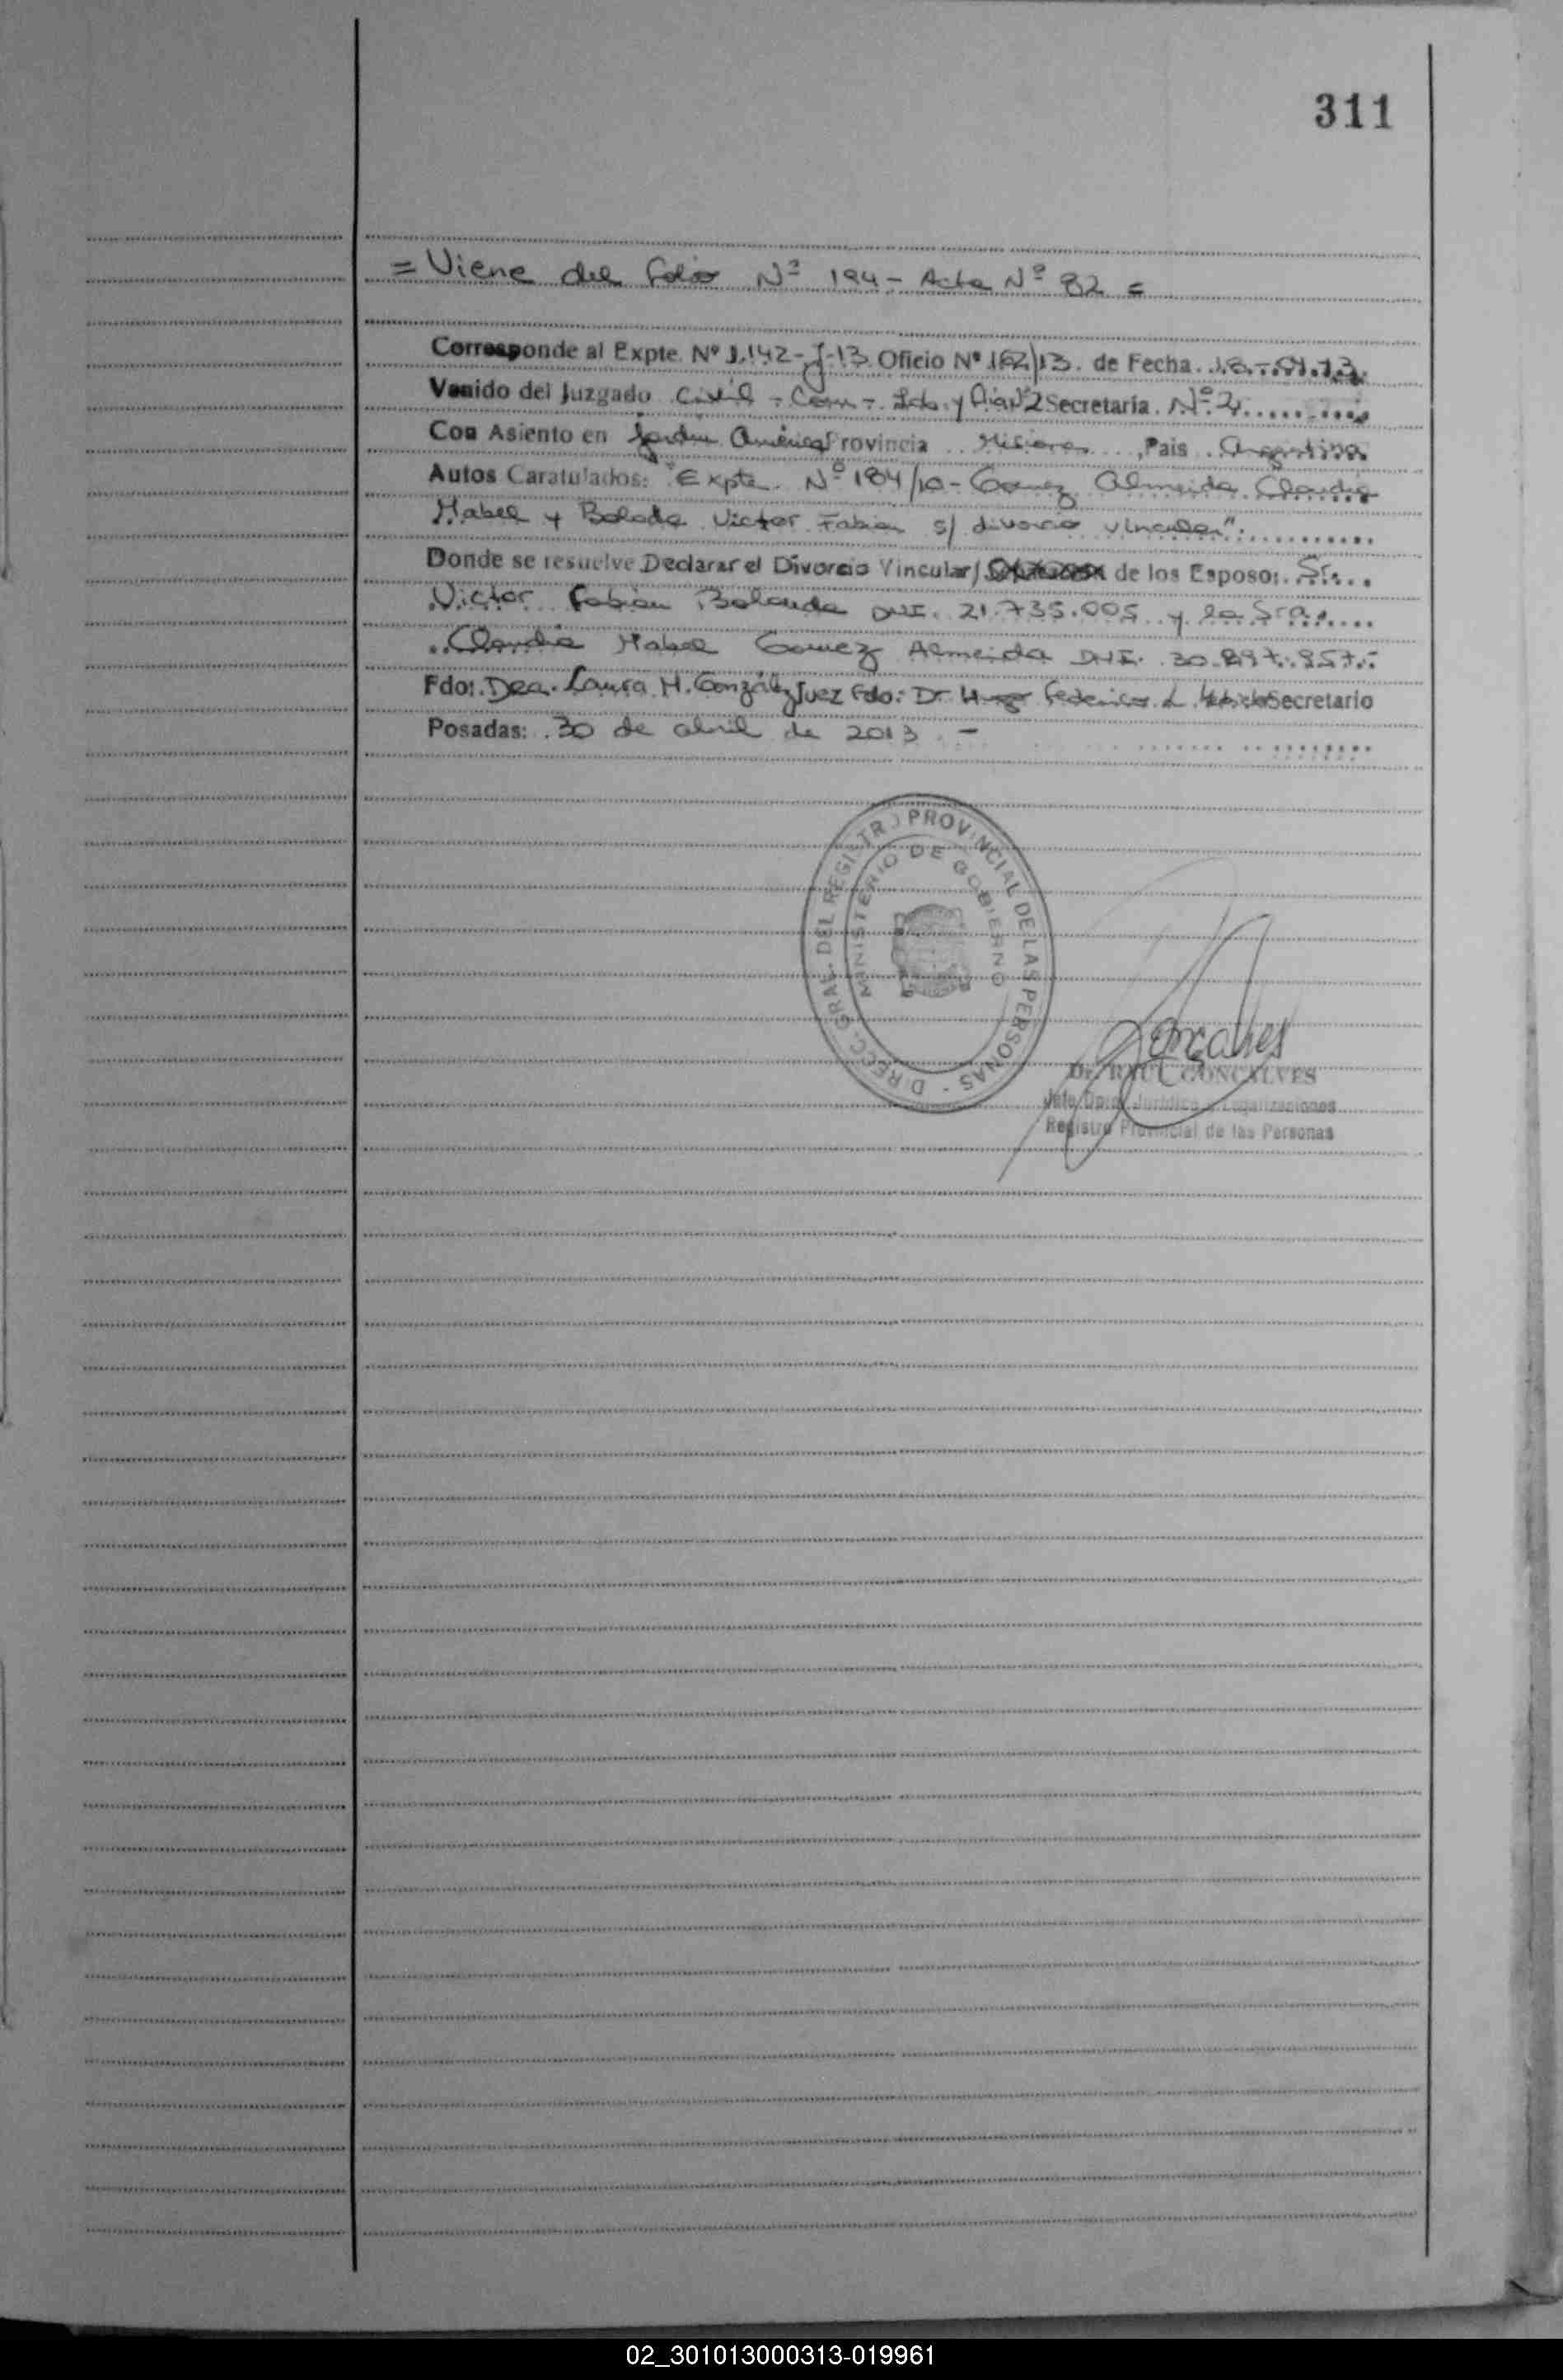 311
= Viene del folio Nº 194 - Acta Nº 82 =
Corresponde al Expte. Nº 1.142-J-13 Oficio Nº 162/13. de Fecha. 18.-01.13.
Venido del Juzgado Civil - Com -. Lab. y Nº 2 Secretaría. Nº 2
Con Asiento en Jardín América Provincia Misiones, Pais. Argentina
Autos Caratulados: "Expte. Nº 184/10 - Gomez Almeida Claudia
Mabel y Victor Fabian s/ divorcio vincular".
Donde se resuelve Declarar el Divorcio Vincular/ de los Esposos: Sr.
Victor Fabian DNI. 21.735.005 y la Sra.
Claudia Mabel Gomez Almeida DNI. 30.897.957.-
Fdo: Dra. Laura H. González Juez Fdo: Dr. Federico Secretario
Posadas: 30 de abril de 2013. -
DIRECC. GRAL. DEL REGISTRO PROVINCIAL DE LAS PERSONAS -
MINISTERIO DE GOBIERNO
Gonçalves
Dr. RAUL GONCALVES
Jefe Dpto. Jurídico Legalizaciones
Registro Provincial de las Personas
02_301013000313-019961